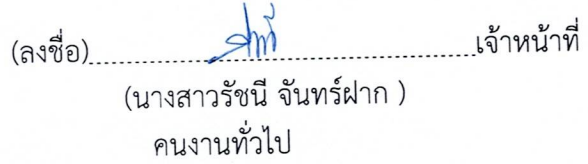 (ลงชื่อ)................................................เจ้าหน้าที่
(นางสาวรัชนี จันทร์ฝาก )
คนงานทั่วไป